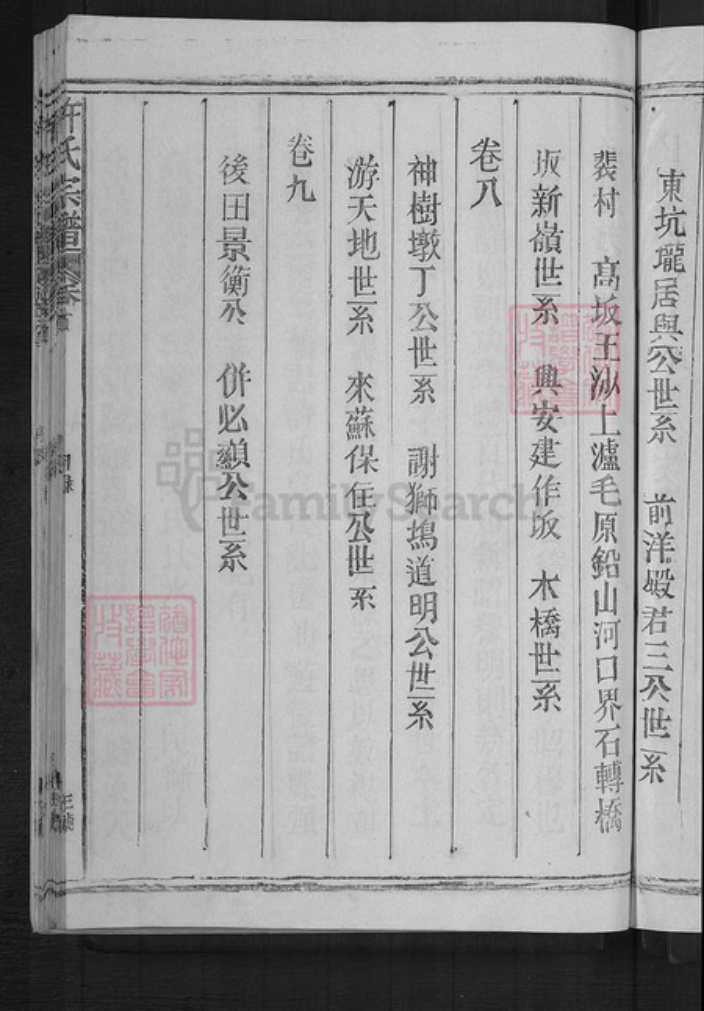 東坑壠居與公世系　前洋殿君三公世系
裴村　高坂王泑上瀘毛原鉛山河口界石轉橋
坂新嶺世系　興安建作坂　木橋世系
卷八
神樹墩丁公世系　謝獅塢道明公世系
游天地世系　來蘇保仕公世系
卷九
後田景衡公　併必顯公世系
許氏宗譜
目錄
FamilySearch